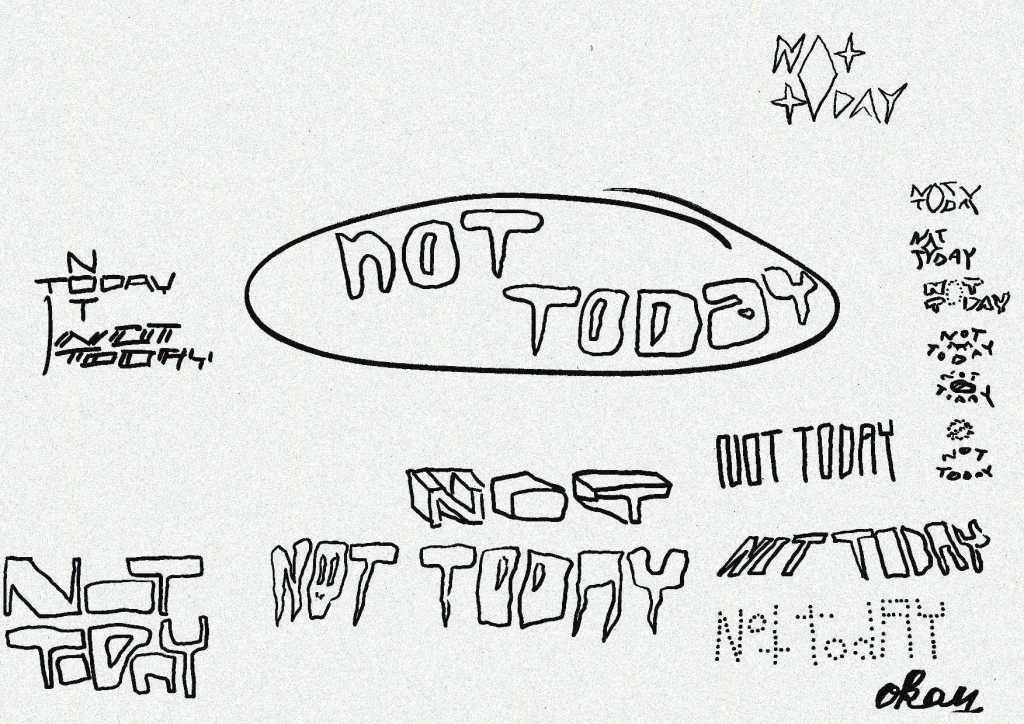 NOT
TODAY
NOT
TODAY
NOT
TODAY
NOT
TODAY
NOT
TODAY
NOT
TODAY
N
TODAY
T
NOT
TODAY
nOT
TODaY
NOT
TODAY
NOT
TODAY
NOT TODAY
NOT
NOT TODAY
NOT TODAY
NoT
ToDAY
Not todAY
okay